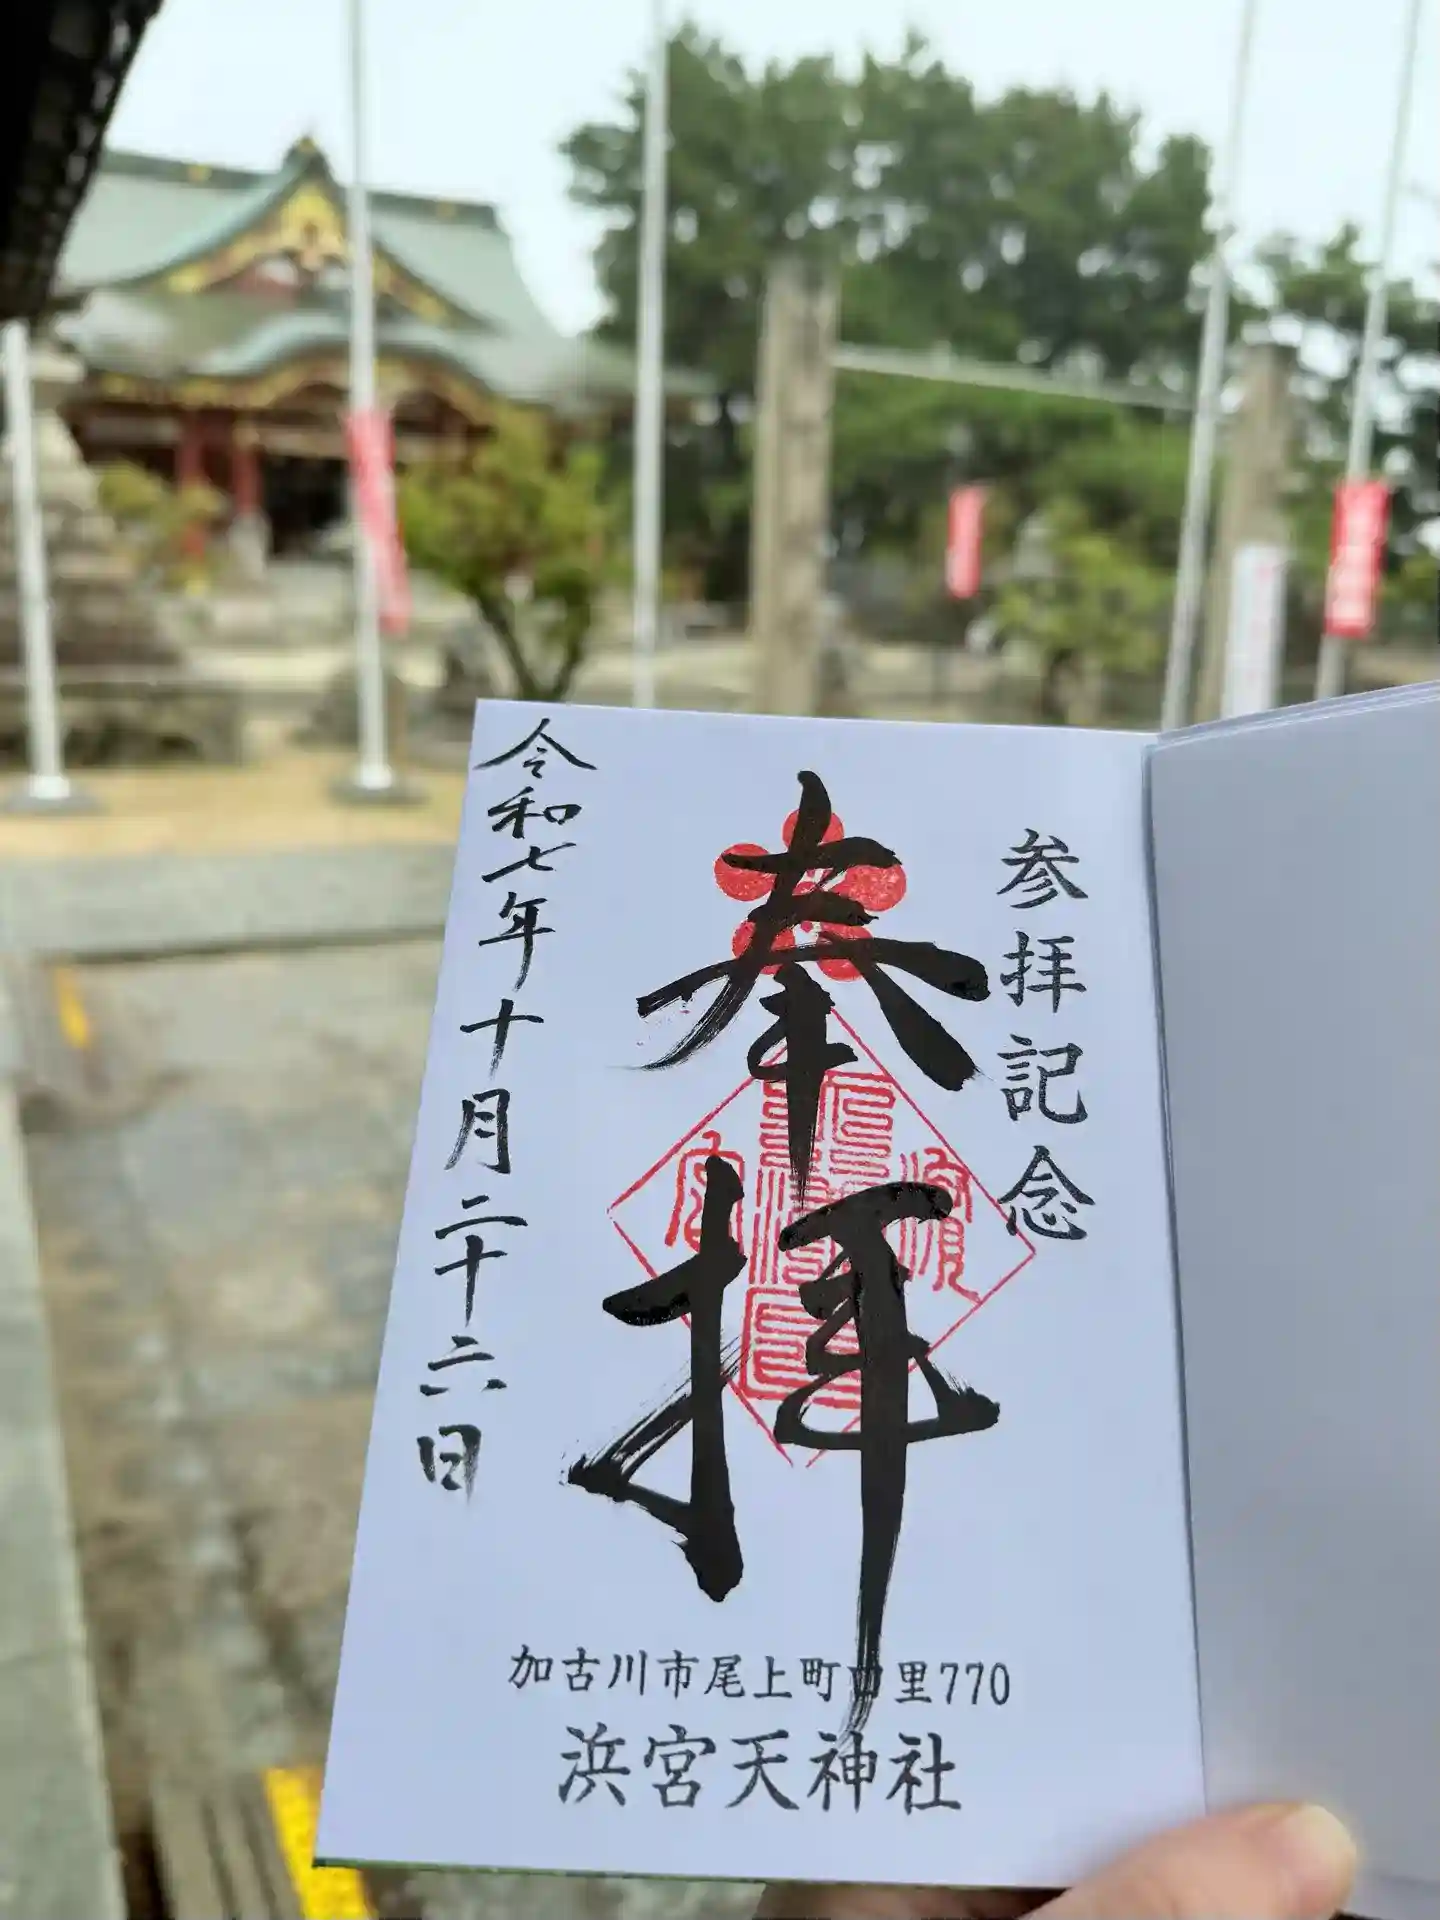 参拝記念
奉拝
令和七年十月二十六日
加古川市尾上町口里770
浜宮天神社